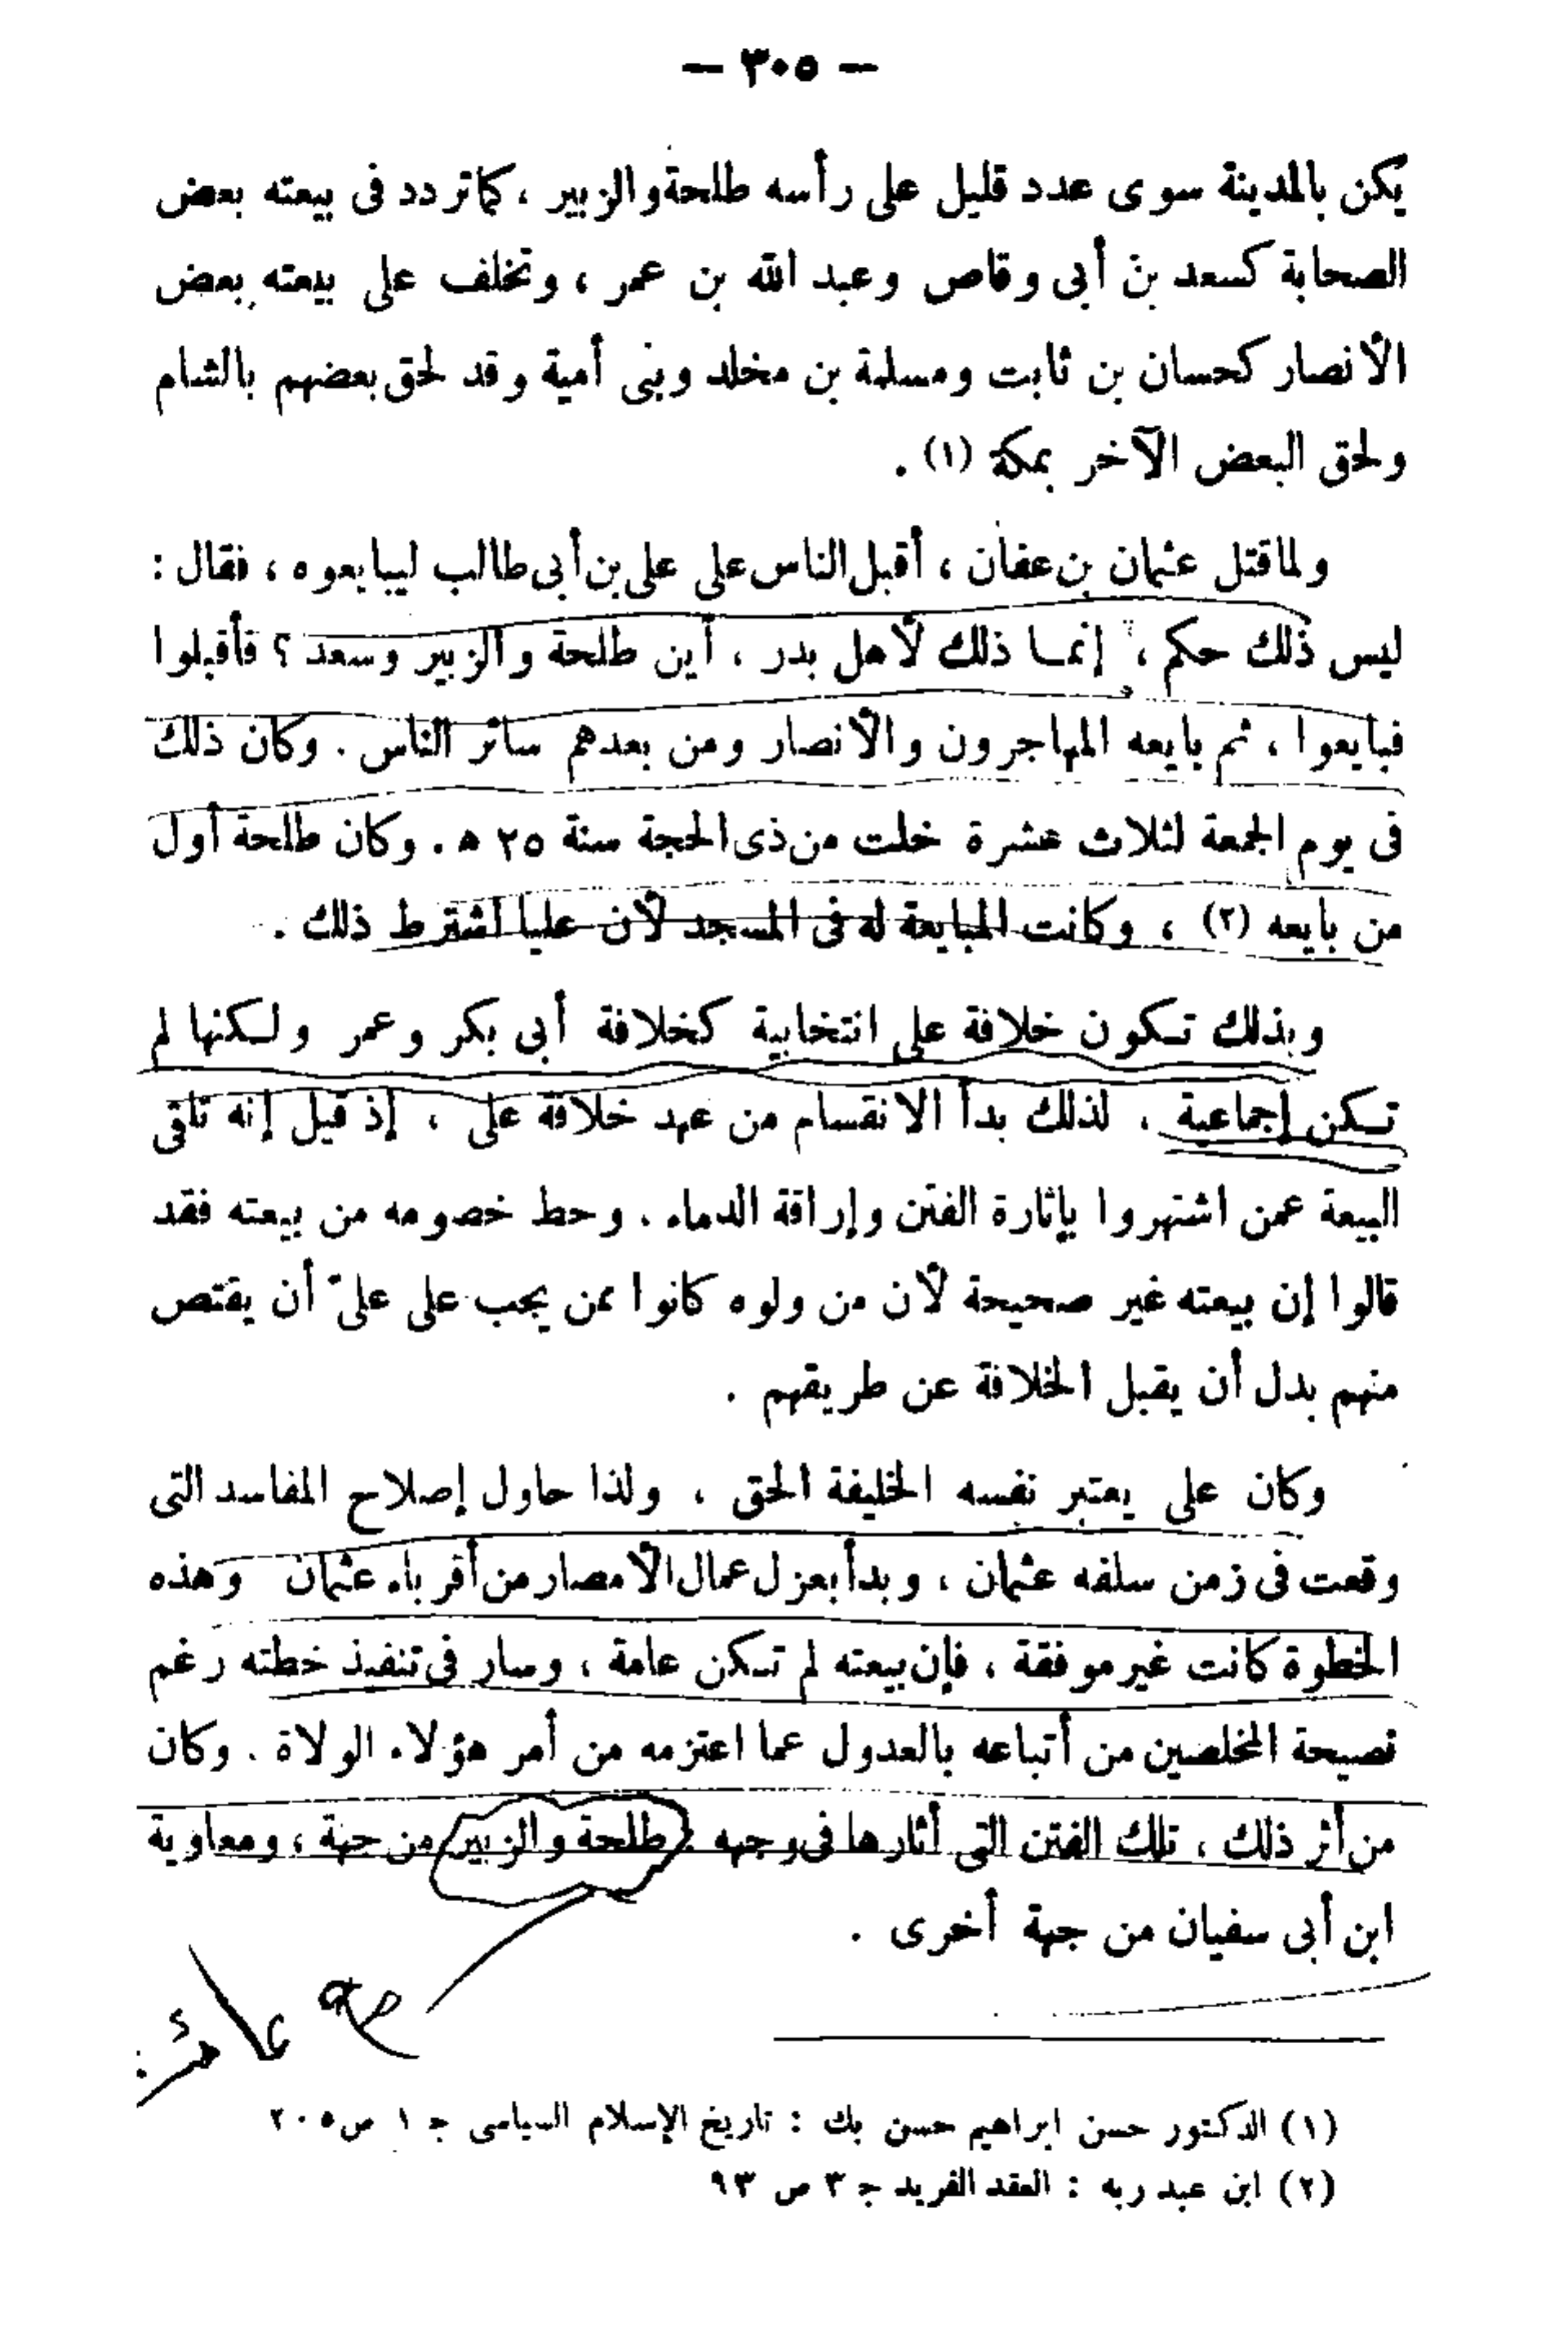 — ٣٠٥ —
يكن بالمدينة سوى عدد قليل على رأسه طلحة والزبير ، كما تردد فى بيعته بعض
الصحابة كسعد بن أبى وقاص وعبد الله بن عمر ، وتخلف على بيعته بعض
الأنصار كحسان بن ثابت ومسلمة بن مخلد وبنى أمية وقد لحق بعضهم بالشام
ولحق البعض الآخر بمكة (١) .
ولما قتل عثمان بن عفان ، أقبل الناس على على بن أبى طالب ليبايعوه ، فقال :
ليس ذلك حكم ، إنما ذلك لأهل بدر ، أين طلحة والزبير وسعد ؟ فأقبلوا
فبايعوا ، ثم بايعه المهاجرون والأنصار ومن بعدهم سائر الناس . وكان ذلك
فى يوم الجمعة لثلاث عشرة خلت من ذى الحجة سنة ٢٥ ه . وكان طلحة أول
من بايعه (٢) ، وكانت المبايعة له فى المسجد لأن عليا اشترط ذلك .
وبذلك تكون خلافة على انتخابية كخلافة أبى بكر وعمر ولكنها لم
تكن إجماعية . لذلك بدأ الانقسام من عهد خلافة على ، إذ قيل إنه تلقى
البيعة عمن اشتهروا بإثارة الفتن وإراقة الدماء . وحط خصومه من بيعته فقد
قالوا إن بيعته غير صحيحة لأن من ولوه كانوا ممن يجب على علىّ أن يقتص
منهم بدل أن يقبل الخلافة عن طريقهم .
وكان على يعتبر نفسه الخليفة الحق ، ولذا حاول إصلاح المفاسد التى
وقعت فى زمن سلفه عثمان ، وبدأ بعزل عمال الأمصار من أقرباء عثمان وهذه
الخطوة كانت غير موفقة ، فإن بيعته لم تكن عامة ، وسار فى تنفيذ خطته رغم
نصيحة المخلصين من أتباعه بالعدول عما اعتزمه من أمر هؤلاء الولاة . وكان
من أثر ذلك ، تلك الفتن التى أثارها فى وجهه : طلحة والزبير من جهة ، ومعاوية
ابن أبى سفيان من جهة أخرى .
(١) الدكتور حسن ابراهيم حسن بك : تاريخ الإسلام السياسى ج ١ ص ٢٠٥
(٢) ابن عبد ربه : العقد الفريد ج ٣ ص ٩٣